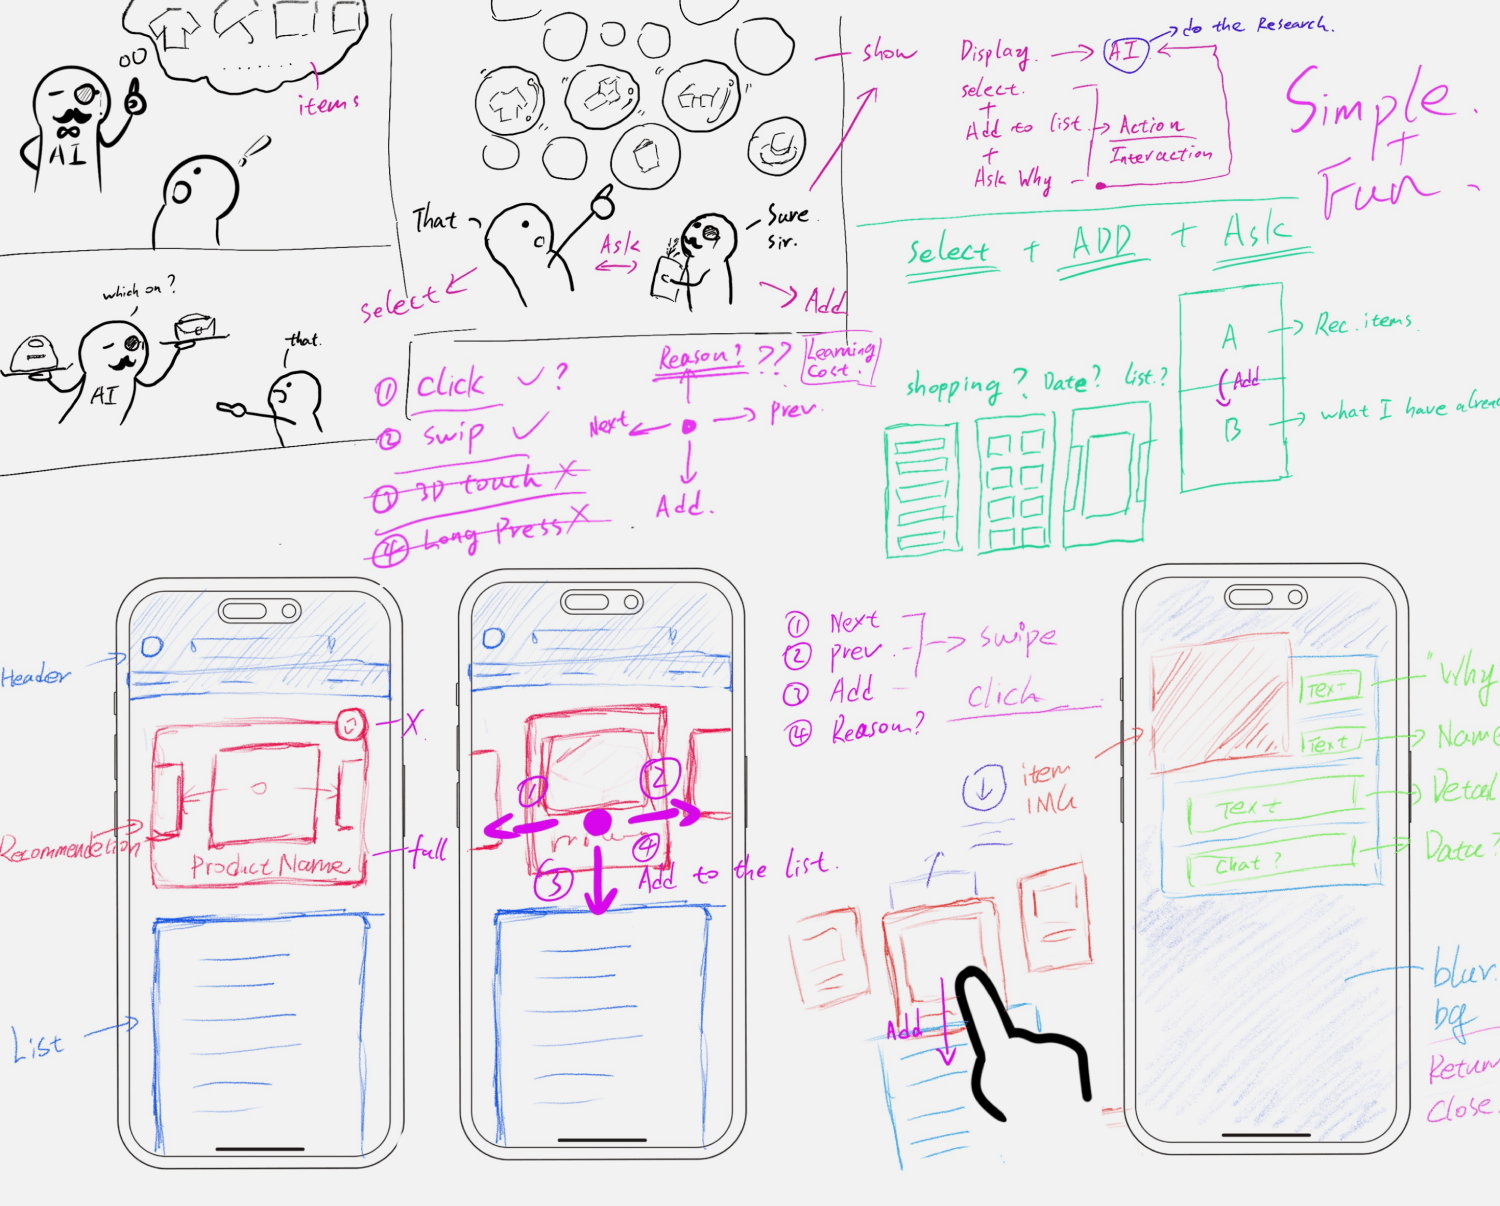 items
AI
That
Ask
Sure
sir.
select
Add
which on?
that.
AI
show
Display.
AI
do the Research.
select.
+
Add to list.
+
Ask Why
Action
Interaction
Simple.
+
Fun.
select + ADD + Ask
① click ✓?
② swip ✓
③ 3D touch X
④ Long Press X
Reason? ??
Learning
Cost.
Next
prev.
Add.
shopping? Date? list.?
A
Add
B
Rec. items.
what I have alrea
Header
Recommendetion
List
X
Product Name
full
①
②
③
④
Add to the list.
① Next
② prev.
③ Add
④ Reason?
swipe
click
item
IMG
Add
Text
Text
Text
Chat?
"Why
Name
Detail
Data?
blur.
bg
Return
Close.